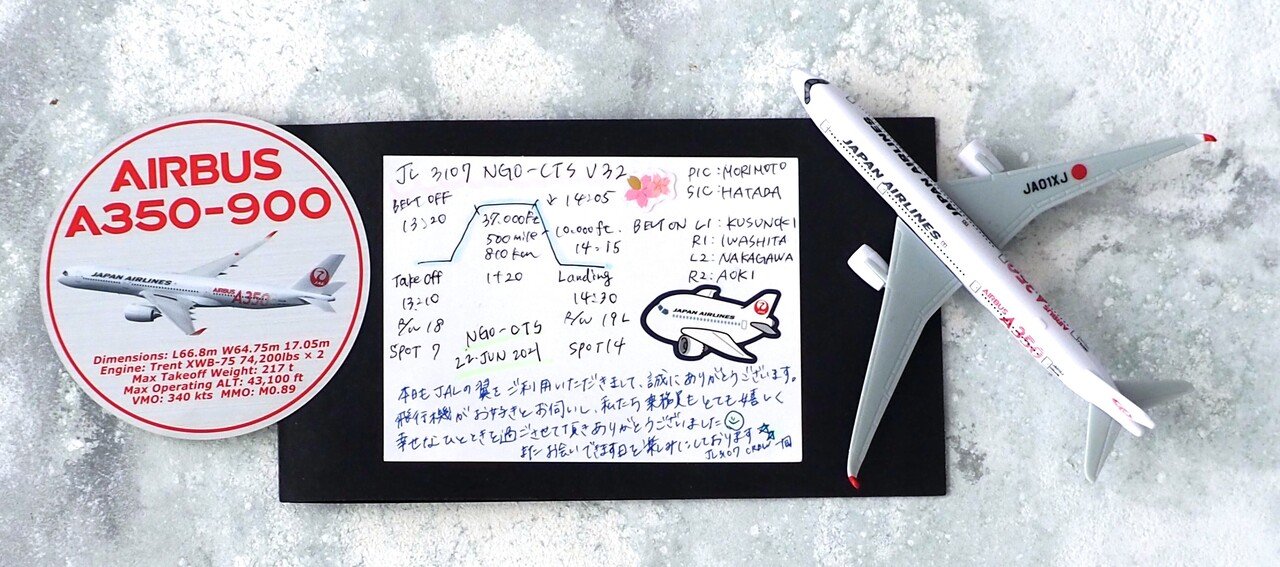 AIRBUS
A350-900
JAPAN AIRLINES
A350
JAL
Dimensions: L66.8m W64.75m 17.05m
Engine: Trent XWB-75 74,200lbs × 2
Max Takeoff Weight: 217 t
Max Operating ALT: 43,100 ft
VMO: 340 kts MMO: M0.89
JL 3107 NGO-CTS V32
BELT OFF
13:20
14:05
37.000ft
500mile
810km
10.000ft.
14:15
BELT ON
Take off
13:10
R/W 18
SPOT 7
1+20
Landing
14:30
R/W 19L
SPOT 14
NGO-CTS
22 JUN 2021
PIC:MORIMOTO
SIC:HATADA
L1:KUSUNOKI
R1:IWASHITA
L2:NAKAGAWA
R2:AOKI
JAPAN AIRLINES
本日もJALの翼をご利用いただきまして、誠にありがとうございます。
飛行機がお好きとお伺いし、私たち乗務員もとても嬉しく
幸せなひとときを過ごさせて頂きありがとうございました
またお会いできます日を楽しみにしております
JL3107 CREW一同
JAPAN AIRLINES
JAPAN AIRLINES
JA01XJ
AIRBUS
A350